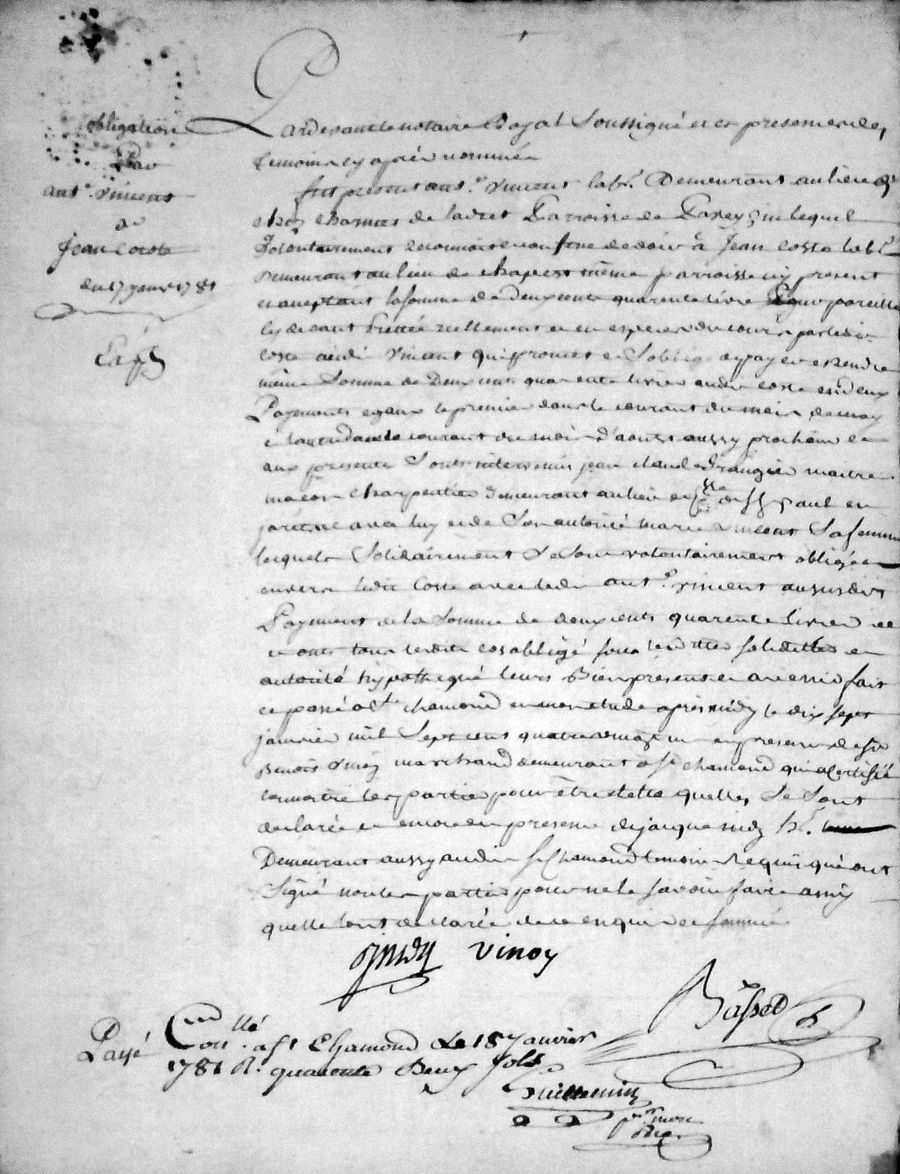 obligation
Par
ant.e vincent
a
Jean Coste
du 17 janv.r 1781
Pardevant le notaire Royal Soussigné et en presence des
temoins cy après nommés
fut present ant.e vincent lab.r Demeurant au lieu
charmes de Lavret Parroisse de Pavezin lequel
Volontairement Reconnoit et confesse de devoir à Jean Coste lab.r
Demeurant au lieu de chapest même parroisse icy present
et aceptant la somme de deux cents quarente livres pour pareille
cy devant Prettée reellement et en especes du cours par ledit
coste audit vincent qui promet et s'oblige a payer et rendre
même Somme de Deux cents quarente livres audit coste en deux
Payements egaux le premier dans le courant du mois de may
et l'autre dans le courant du mois d'aoust aussy prochain et
aux presentes Sont intervenus jean claude frangier maitre
macon charpentier demeurant au lieu de paul en
jarresse avec luy et de Son autorité marie vincent Sa femme
lesquels Solidairement Se sont volontairement obligés
envers ledit Coste avec ledit ant.e vincent au susdit
Payement de la Somme de deux cents quarente livres et
ont tous lesdits coobligés sous lesdittes solidittes et
autorité hypothequé leurs Biens presents et avenir fait
et passé a St chamond en mon etude après midy le dix sept
janvier mil Sept cens quatre vingt un en presence de sr
Benoit vinoy marchand demeurant a St chamond qui a certifié
connoitre les parties pour être telles quelles Se Sont
declarée et encore en presence de jacque
Demeurant aussy audit St Chamond temoins Requis qui ont
Signé non les parties pour ne le savoir faire ainsy
quelle l'ont declarée de ce enquises et sommées
vinoy
Basset
Payé
Con.llé a St Chamond Le 18 Janvier
1781 R. quarente Deux Sols